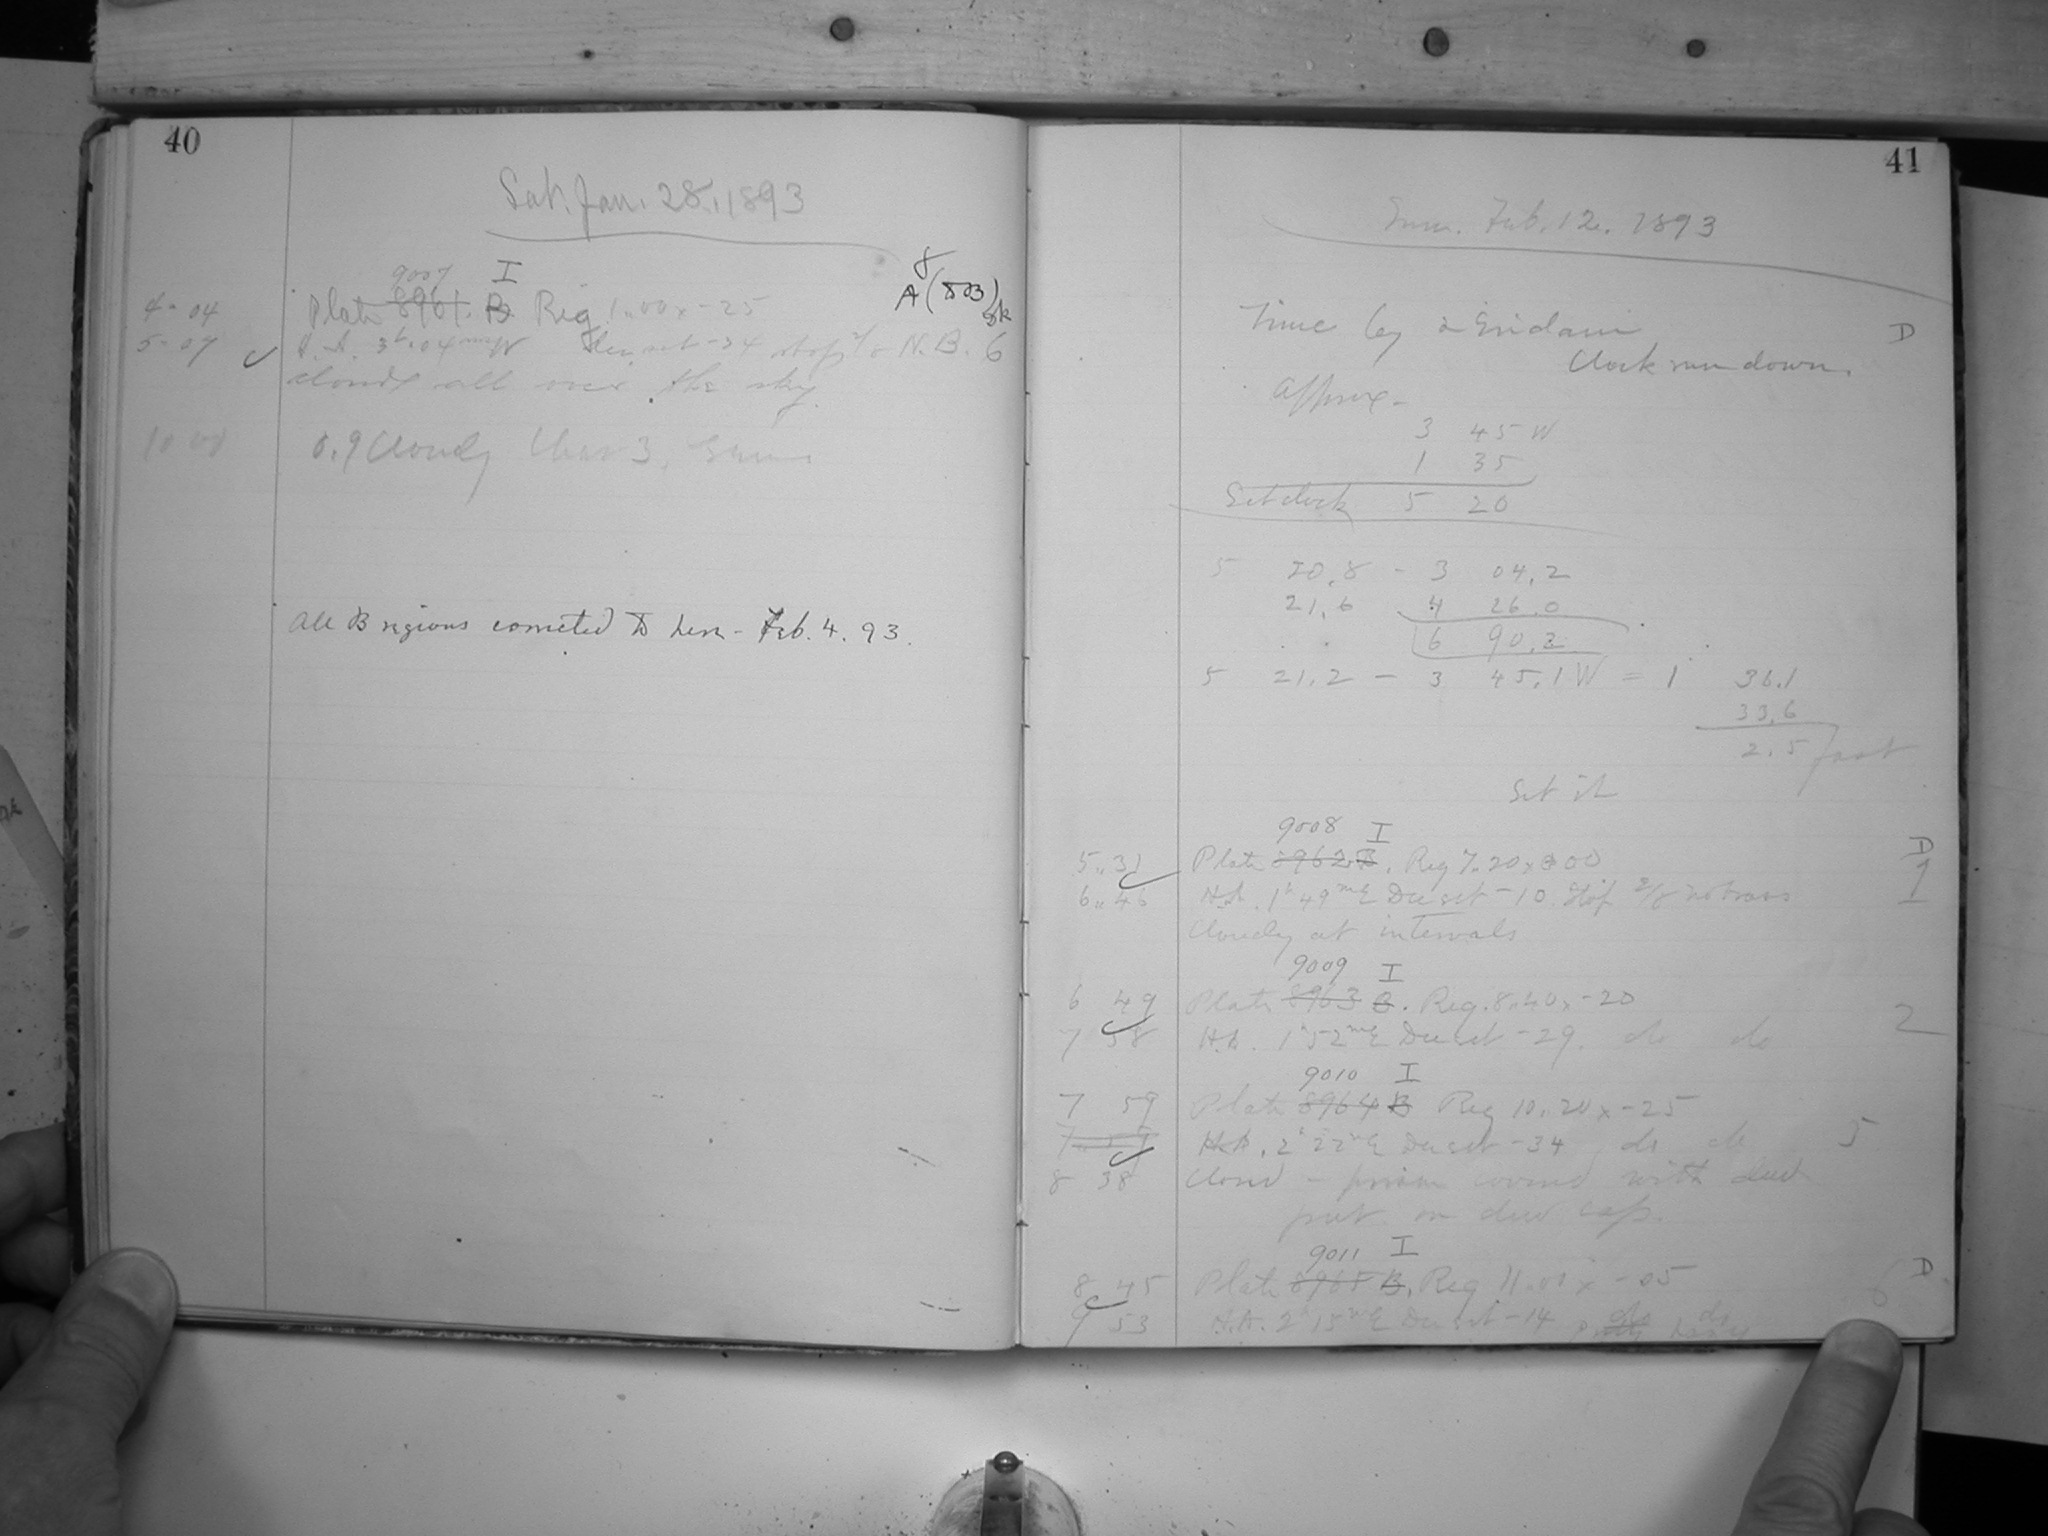 40
Sat. Jan. 28, 1893
9007 I
8
4 - 04 Plate 8961 B Reg 1.00 x -25 A (803)
5 - 07 3h 04m W Dec set -34 stop N. B. 6
clouds all over the sky.
10 00 0.9 Cloudy
All B regions corrected to here - Feb. 4. 93.
41
Sun. Feb. 12. 1893
Time by α Eridani D
Clock run down.
Approx -
3 45 W
1 35
Set clock 5 20
5 20.8 - 3 04.2
21.6 4 26.0
6 90.2
5 21.2 - 3 45.1 W = 1 36.1
33.6
2.5 fast
Set it
9008 I
5.. 31 Plate 8962 B. Reg 7.20 x 00 D
6.. 46 H.A. 1h 49m E Dec set -10 Stop 1
Cloudy at intervals
9009 I
6 49 Plate 8963 B. Reg. 8.40 x -20
7 58 H.A. 1h 52m E Dec set -29. do do 2
9010 I
7 59 Plate 8964 B Reg 10.20 x -25
7 59 H.A. 2h 22m E Dec set -34 do do 5
8 38 Closed - prism covered with dew
put on dew cap.
9011 I
8 45 Plate 8965 B. Reg 11.00 x -05 D
9 53 H.A. 2h 15m E Dec set -14 do 6